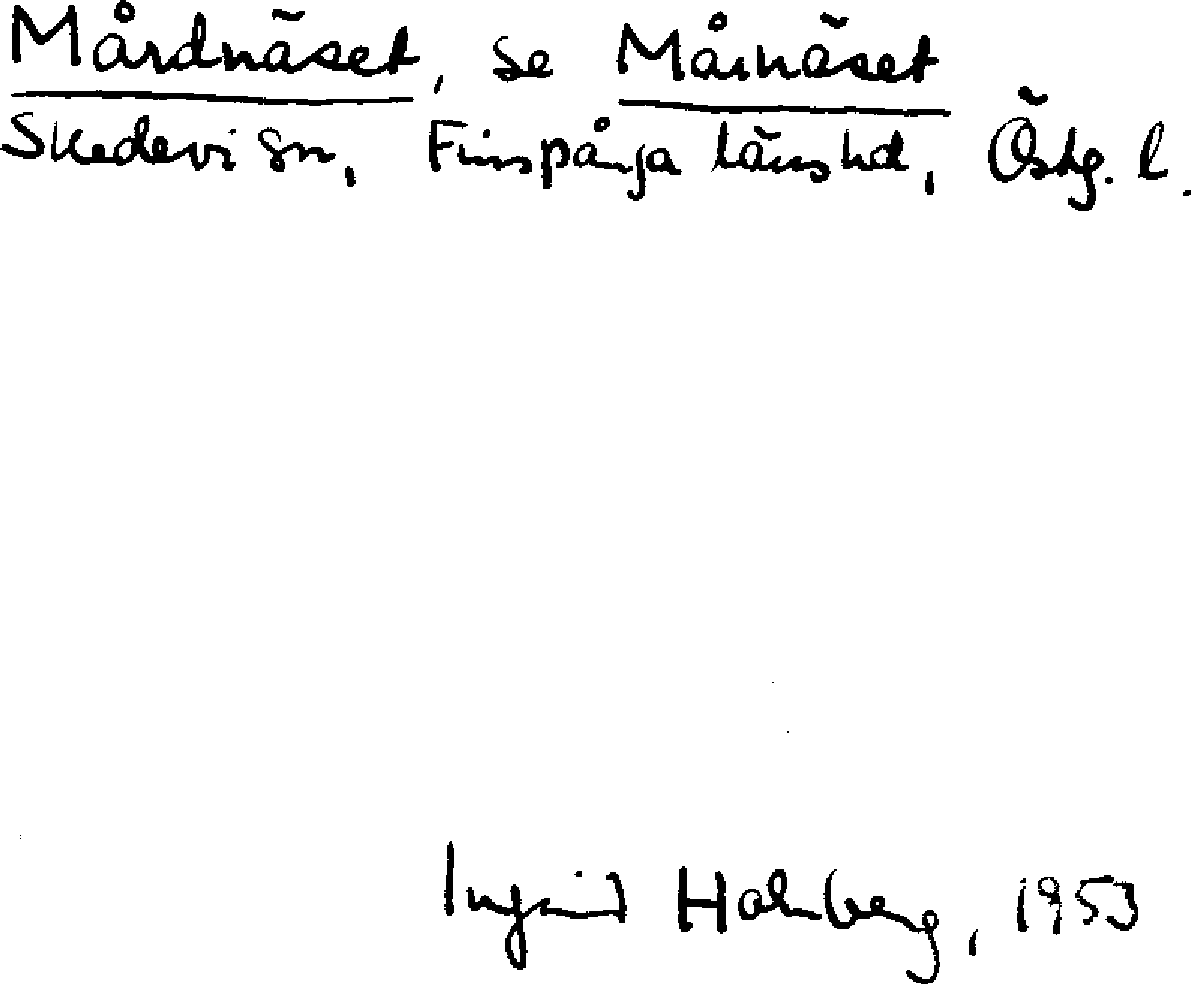 Mårdnäset, se Mårnäset
Skedevi sn, Finspånga länshd, Östg. l.
Ingrid Holmberg, 1953